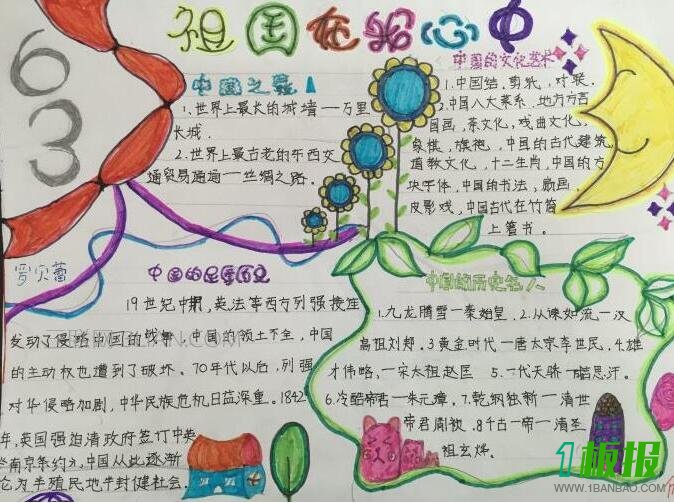 祖国在我心中
63
中国之最
1.世界上最长的城墙一万里
长城.
2.世界上最古老的东西交
通贸易通道一丝绸之路.
中国的文化艺术
1.中国结.剪纸,对联.
2.中国八大菜系,地方方言
国画,茶文化,戏曲文化,
象棋,旗袍,中国的古代建筑
道教文化,十二生肖,中国的方
块字体,中国的书法,版画,
皮影戏,中国古代在竹简
上篆书.
罗贝蕾
中国的屈辱历史
19世纪中期,英法等西方列强接连
发动了侵略中国的战争,中国的领土不全,中国
的主动权也遭到了破坏.70年代以后,列强
对华侵略加剧,中华民族危机日益深重.1842
年,英国强迫清政府签订中英
南京条约,中国从此逐渐
沦为半殖民地半封建社会.
中国的历史名人
1.九龙腾雪一秦始皇,2.从谏如流一汉
高祖刘邦.3黄金时代一唐太宗李世民.4.雄
才伟略,一宋太祖赵匡 5.一代天骄一酷思汗.
6.冷酷帝君一朱元璋.7.乾纲独断一清世
帝君周祯.8.千古一帝一清圣
祖玄烨.
1板报
WWW.1BANBAO.COM